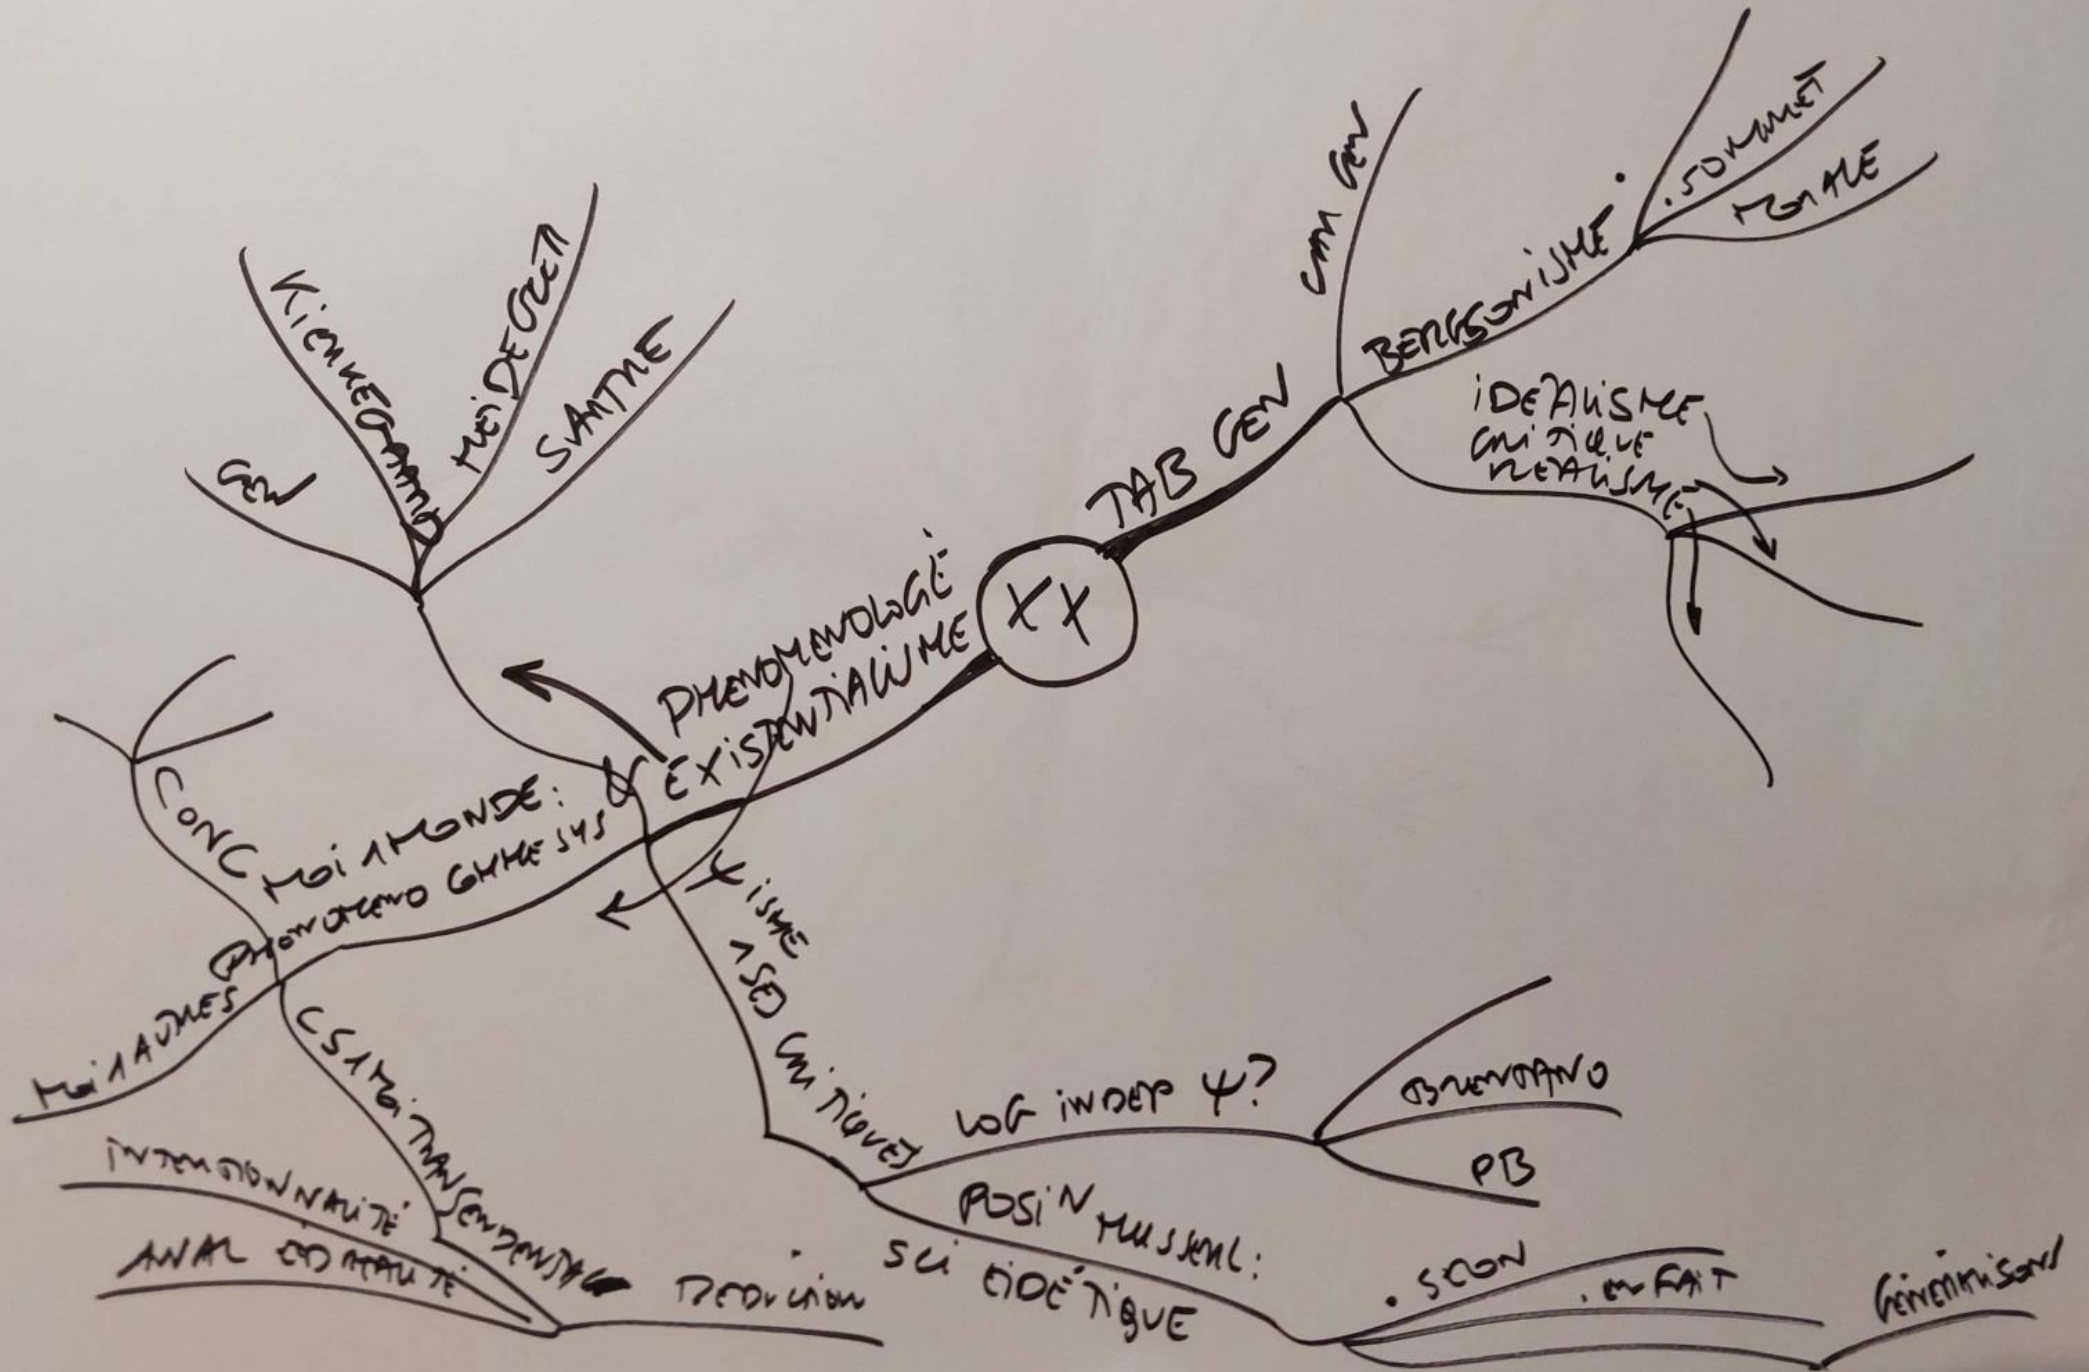 XX
TAB GEN
CAR GEN
BERGSONISME
. SOMMET
MORALE
IDEALISME
CRITIQUE
REALISME
PHENOMENOLOGIE
& EXISTENTIALISME
GEN
KIERKEGAARD
HEIDEGGER
SARTRE
MOI 1 MONDE:
PHENOMENO COMME SYS
CONC
MOI 1 AUTRES
CS 1 MOI TRANSCENDENTAL
INTENTIONNALITÉ
ANAL
REDUCTION
Ψ ISME
CRITIQUES
LOG INDEP Ψ?
BRENTANO
PB
POSIN HUSSERL:
SCI EIDÉTIQUE
. SELON
. EN FAIT
GENERALISONS